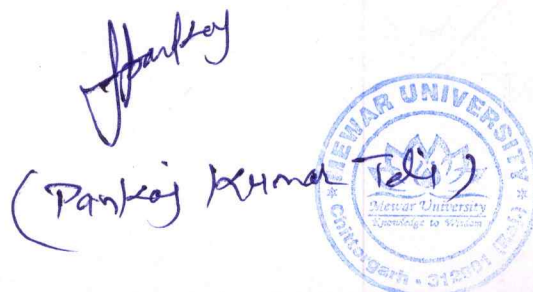 Pankaj
(Pankaj Kumar Teli)
MEWAR UNIVERSITY
Mewar University
Knowledge to Wisdom
* Chittorgarh - 312901 (Raj.) *